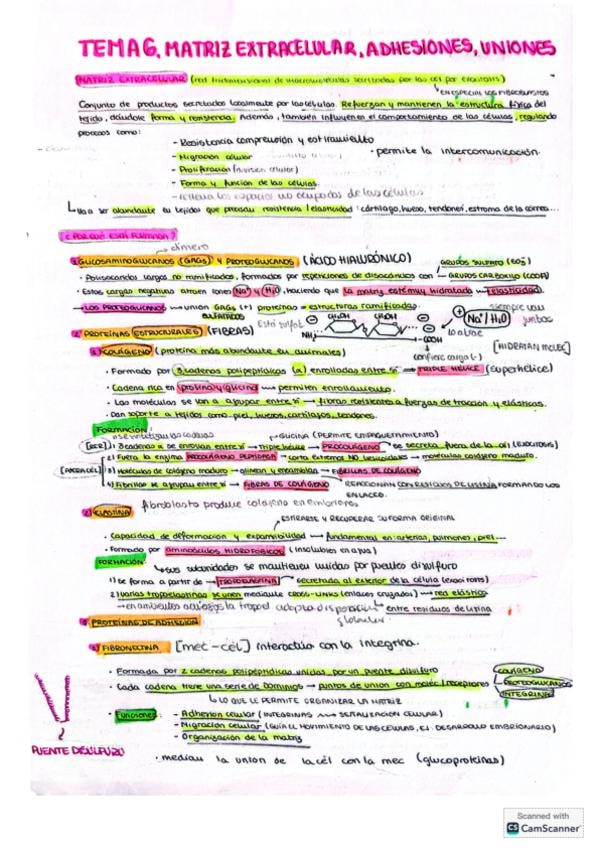 TEMA 6. MATRIZ EXTRACELULAR, ADHESIONES, UNIONES
MATRIZ EXTRACELULAR (red tridimensional de macromoléculas secretadas por las cel por exocitosis)
EN ESPECIAL LOS FIBROBLASTOS
Conjunto de productos secretados localmente por las células. Refuerzan y mantienen la estructura física del
tejido, dándole forma y resistencia. Además, también influyen en el comportamiento de las células, regulando
procesos como:
- Resistencia compresión y estiramiento
- Migración celular
· permite la intercomunicación.
- Proliferación (división celular)
- Forma y función de las células.
- rellena los espacios no ocupados de las células
Va a ser abundante en tejidos que precisan resistencia / elasticidad: cartílago, hueso, tendones, estroma de la córnea...
¿POR QUÉ ESTÁ FORMADA?
dímero
1. GLUCOSAMINOGLUCANOS (GAGs) Y PROTEOGLUCANOS (ÁCIDO HIALURÓNICO)
GRUPOS SULFATO
· Polisacáridos largos no ramificados, formados por repeticiones de disacáridos con GRUPOS CARBOXILO (COO⁻)
· Estas cargas negativas atraen iones Na⁺ y H₂O, haciendo que la matriz esté muy hidratada → elasticidad.
· LOS PROTEOGLUCANOS → unión GAGs (+) proteínas = estructuras ramificadas.
SULFATADOS
siempre van
juntos
+ Na⁺/H₂O
CH₂OH CH₂OH
NH
COOH
lo atrae
confiere carga (-)
[HIDRATAN MOLEC]
2. PROTEÍNAS ESTRUCTURALES (FIBRAS)
1) COLÁGENO (proteína más abundante en animales)
· Formado por 3 cadenas polipeptídicas (α) enrolladas entre sí → TRIPLE HÉLICE (superhélice)
· Cadena rica en prolina y glicina → permiten enrollamiento.
· Las moléculas se van a agrupar entre sí → fibras resistentes a fuerzas de tracción y elásticas.
· Dan soporte a tejidos como piel, huesos, cartílagos, tendones.
FORMACIÓN:
se sintetizan las cadenas
GLICINA (PERMITE EMPAQUETAMIENTO)
[RER] 3 cadenas α se enrollan entre sí → triple hélice → PROCOLÁGENO → se secreta fuera de la cel (EXOCITOSIS)
2) Fuera la enzima PROCOLÁGENO PEPTIDASA → corta extremos NO helicoidales → moléculas colágeno maduro.
3) Moléculas de colágeno maduro → alinean y ensamblan → FIBRILLAS DE COLÁGENO
4) Fibrillas se agrupan entre sí → FIBRAS DE COLÁGENO
REACCIONAN CON RESIDUOS DE LISINA FORMANDO LOS
ENLACES.
2) ELASTINA
fibroblasto produce colágeno en embriones
ESTIRARSE Y RECUPERAR SU FORMA ORIGINAL
· Capacidad de deformación y expansibilidad → fundamental en: arterias, pulmones, piel...
· Formado por aminoácidos HIDROFÓBICOS (insolubles en agua)
FORMACIÓN:
sus subunidades se mantienen unidas por puentes disulfuro
1) Se forma a partir de → TROPOELASTINA secretada al exterior de la célula (exocitosis)
2) Varias tropoelastinas se unen mediante CROSS-LINKS (enlaces cruzados) → red elástica
→ en ambientes acuosos la tropoel adopta disposición
globular.
entre residuos de lisina
3. PROTEÍNAS DE ADHESIÓN
a) FIBRONECTINA [mec-cél] interactúa con la integrina.
· Formada por 2 cadenas polipeptídicas unidas, por un puente disulfuro
· Cada cadena tiene una serie de dominios → puntos de unión con molec/receptores
COLÁGENO
PROTEOGLUCANOS
INTEGRINA
LO QUE LE PERMITE ORGANIZAR LA MATRIZ
· Funciones:
- Adhesión celular (INTEGRINAS → SEÑALIZACIÓN CELULAR)
- Migración celular (GUÍA EL MOVIMIENTO DE LAS CÉLULAS, EJ. DESARROLLO EMBRIONARIO)
- Organización de la matriz
PUENTE DISULFURO
· median la unión de la cél con la mec (glucoproteínas)
Scanned with
CS CamScanner